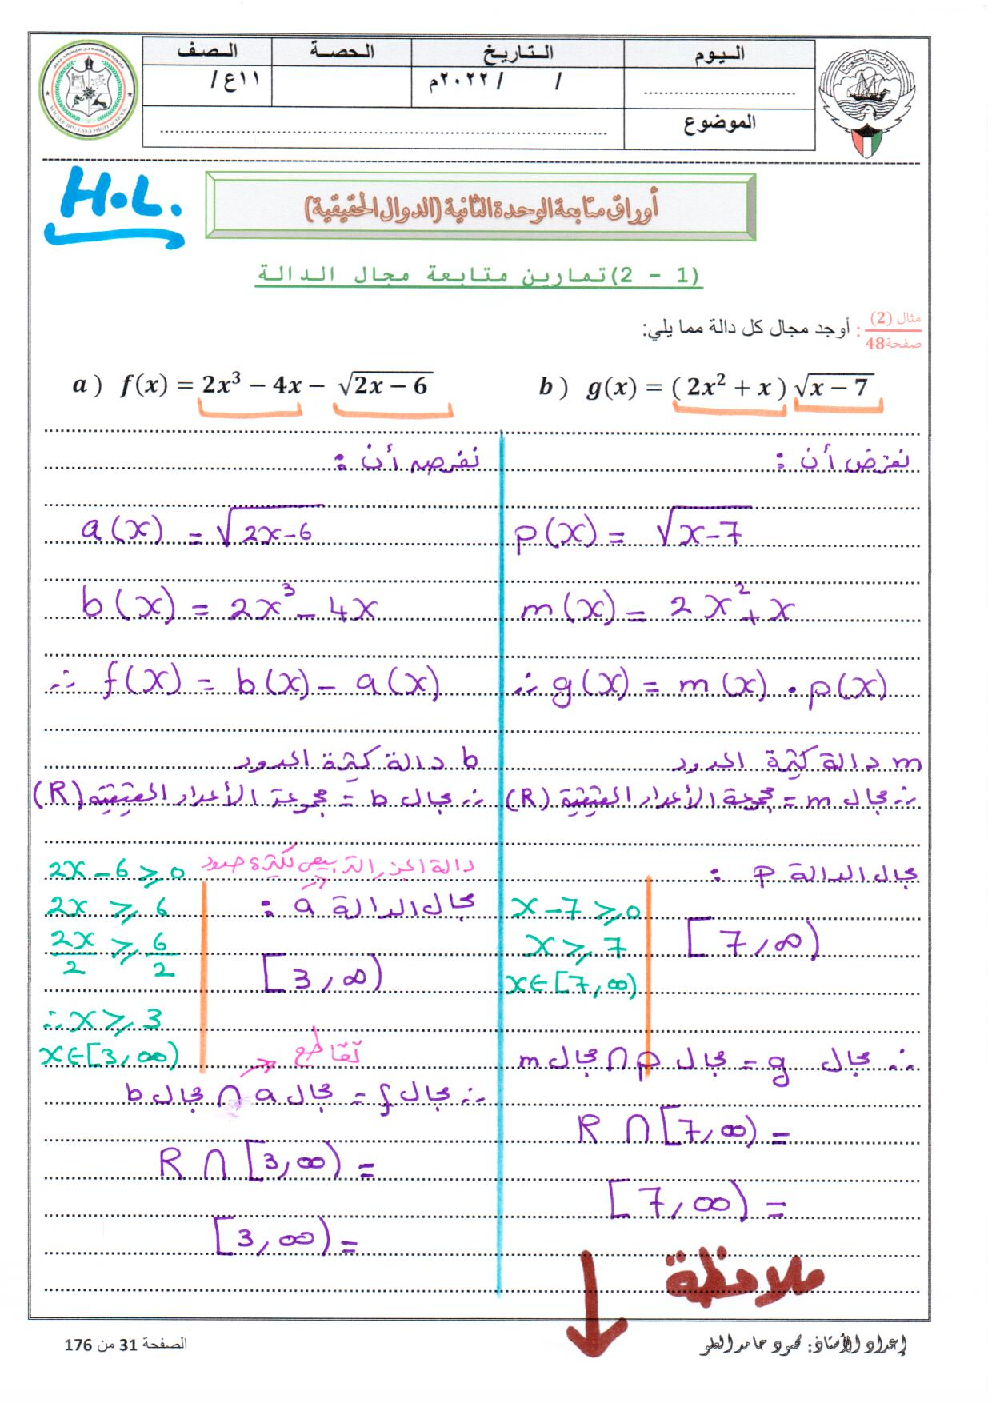 اليوم التاريخ الحصة الصف
/ / ٢٠٢٢م ١١ع /
الموضوع
H.L.
أوراق متابعة الوحدة الثانية (الدوال الحقيقية)
(1 - 2) تمارين متابعة مجال الدالة
مثال (2)
صفحة 48
: أوجد مجال كل دالة مما يلي:
a ) f(x) = 2x³ − 4x − √(2x − 6)
b ) g(x) = ( 2x² + x ) √(x − 7)
نفرض أن :
a(x) = √(2x-6)
b(x) = 2x³ - 4x
∴ f(x) = b(x) - a(x)
b دالة كثيرة الحدود
∴ مجال b = مجموعة الأعداد الحقيقية (R)
2x - 6 ≥ 0
2x ≥ 6
2x/2 ≥ 6/2
∴ x ≥ 3
x ∈ [3, ∞)
مجال الدالة a :
[3, ∞)
تقاطع
∴ مجال f = مجال a ∩ مجال b
= R ∩ [3, ∞)
= [3, ∞)
نفرض أن :
p(x) = √(x-7)
m(x) = 2x² + x
∴ g(x) = m(x) . p(x)
m دالة كثيرة الحدود
∴ مجال m = مجموعة الأعداد الحقيقية (R)
مجال الدالة p :
x - 7 ≥ 0
x ≥ 7
x ∈ [7, ∞)
[7, ∞)
∴ مجال g = مجال p ∩ مجال m
= R ∩ [7, ∞)
= [7, ∞)
ملاحظة
إعداد الأستاذ: محمود حامد
الصفحة 31 من 176